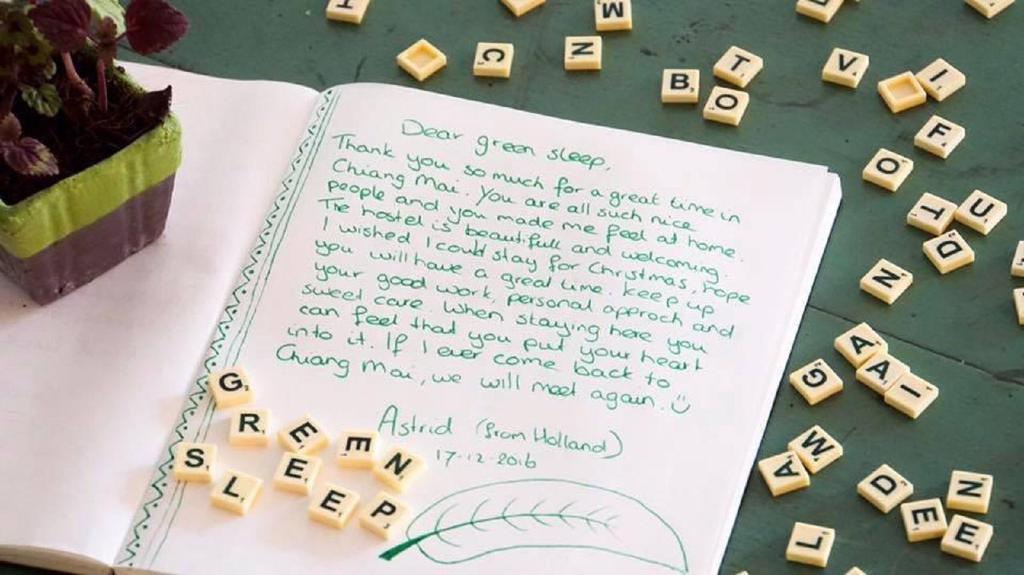 Dear green sleep,
Thank you so much for a great time in
Chiang Mai. You are all such nice
people and you made me feel at home.
The hostel is beautifull and welcoming.
I wished I could stay for Christmas, hope
you will have a great time. Keep up
your good work, personal approch and
sweet care. When staying here you
can feel that you put your heart
into it. If I ever come back to
Chiang Mai, we will meet again. ☺
Astrid (from Holland)
17-12-2016
GREEN
SLEEP
I
M
C N
B T O
V I
F
O
T U
D
N
A
G A I
W
A
D N
E E
L